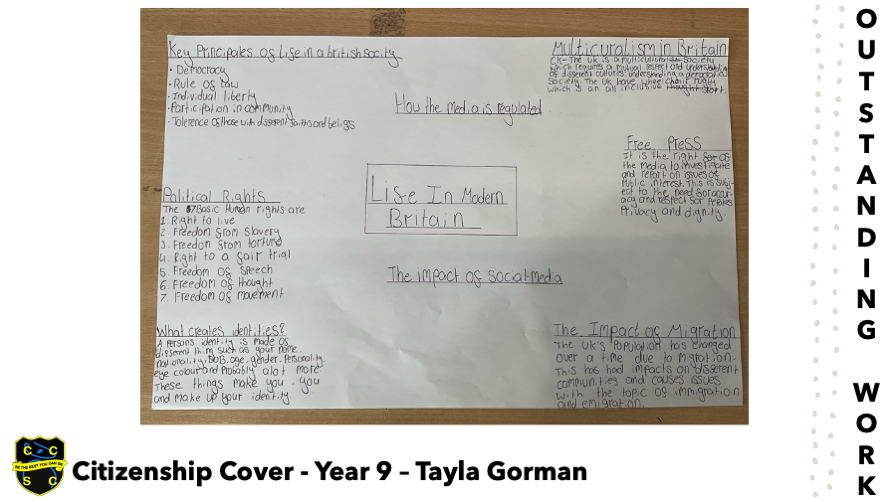 Key Principales of Life in a british socity
· Democracy
· Rule of Law
· Individual liberty
· Participation in community
· Tolerence of those with different faiths and beliefs
How the media is regulated
Multiculturalism in Britain
CK- The UK is a multicultural society
which requires a mutual respect and understanding
of different cultures. understanding a
society. The UK have wheelchair rugby
which is an all inclusive sport.
Free Press
It is the right for of
the media to investigate
and report on issues of
Public interest. This is subj-
ect to the need for accur-
acy and respect for Peoples
Privacy and dignity.
Life In Modern
Britain
Political Rights
The 7 Basic Human rights are
1. Right to live
2. Freedom from slavery
3. Freedom from torture
4. Right to a fair trial
5. Freedom of speech
6. Freedom of thought
7. Freedom of movement
The impact of social media
What creates identities?
A persons identity is made of
different thing such as your name,
nationality, DOB, age, gender, Personality,
eye colour and probably alot more
These things make you, you
and make up your identity
The Impact of Migration
The UK's Population has changed
over a time due to migration.
This has had impacts on different
communities and causes issues
with the topic of immigration
and emigration.
OUTSTANDING WORK
C C
BE THE BEST YOU CAN BE
S C
Citizenship Cover - Year 9 – Tayla Gorman